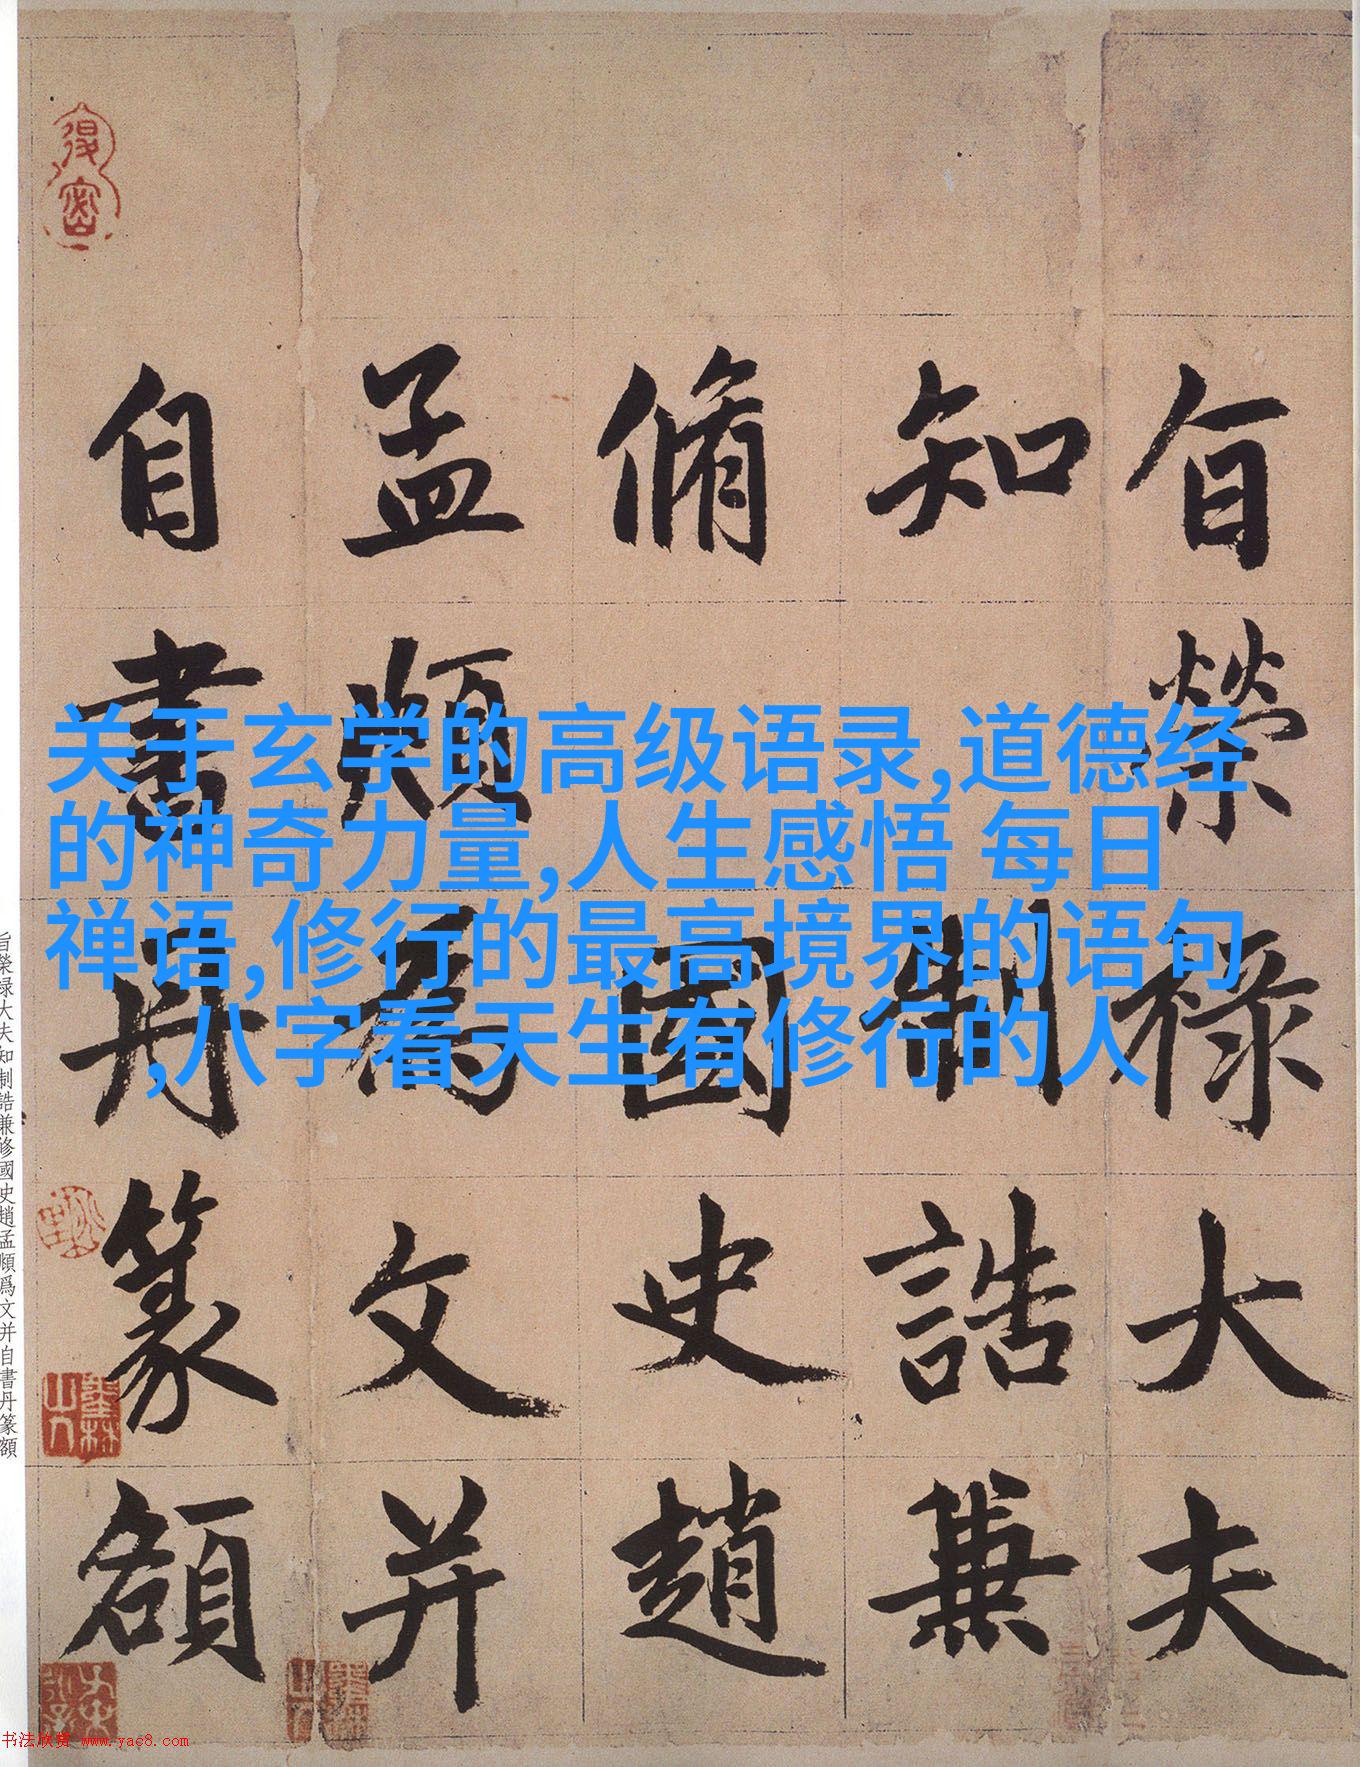 旨榮祿大夫
知制誥兼
脩國史趙
孟頫為文并
自書丹篆額
关于玄学的高级语录,道德经
的神奇力量,人生感悟 每日
禅语,修行的最高境界的语句
,八字看天生有修行的人
旨榮禄大夫知制誥兼修國史趙孟頫爲文并自書丹篆額
书法欣赏 www.yac8.com